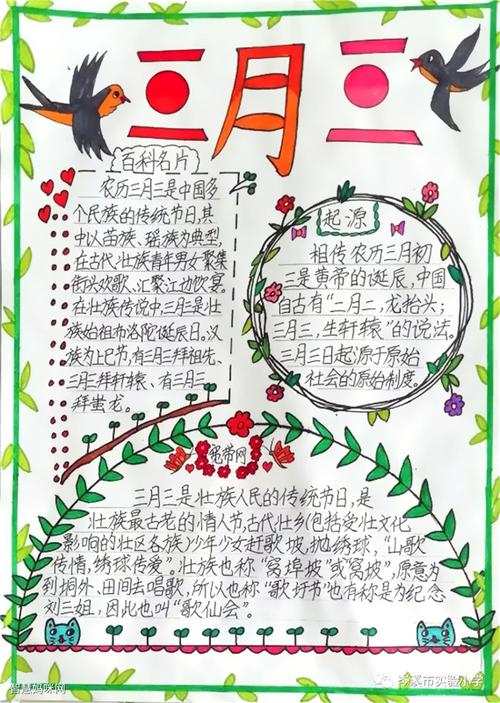 三月三
百科名片
农历三月三是中国多
个民族的传统节日,其
中以苗族、瑶族为典型,
在古代,壮族青年男女聚集
街头欢歌、汇聚江边饮宴。
在壮族传说中,三月三是壮
族始祖布洛陀诞辰日。汉
族为上巳节,有三月三拜祖先、
三月三拜轩辕、有三月三
拜蚩龙。
起源
相传农历三月初
三是黄帝的诞辰,中国
自古有“二月二,龙抬头;
三月三,生轩辕”的说法。
三月三日起源于原始
社会的原始制度。
宽带网
三月三是壮族人民的传统节日,是
壮族最古老的情人节,古代壮乡(包括受壮文化
影响的壮区各族)少年少女赶歌坡,抛绣球,“山歌
传情,绣球传爱”,壮族也称“窝埠坡”或“窝坡”,原意为
到垌外、田间去唱歌,所以也称“歌圩节”也有称是为纪念
刘三姐,因此也叫“歌仙会”。
智慧妈咪网
岑溪市实验小学